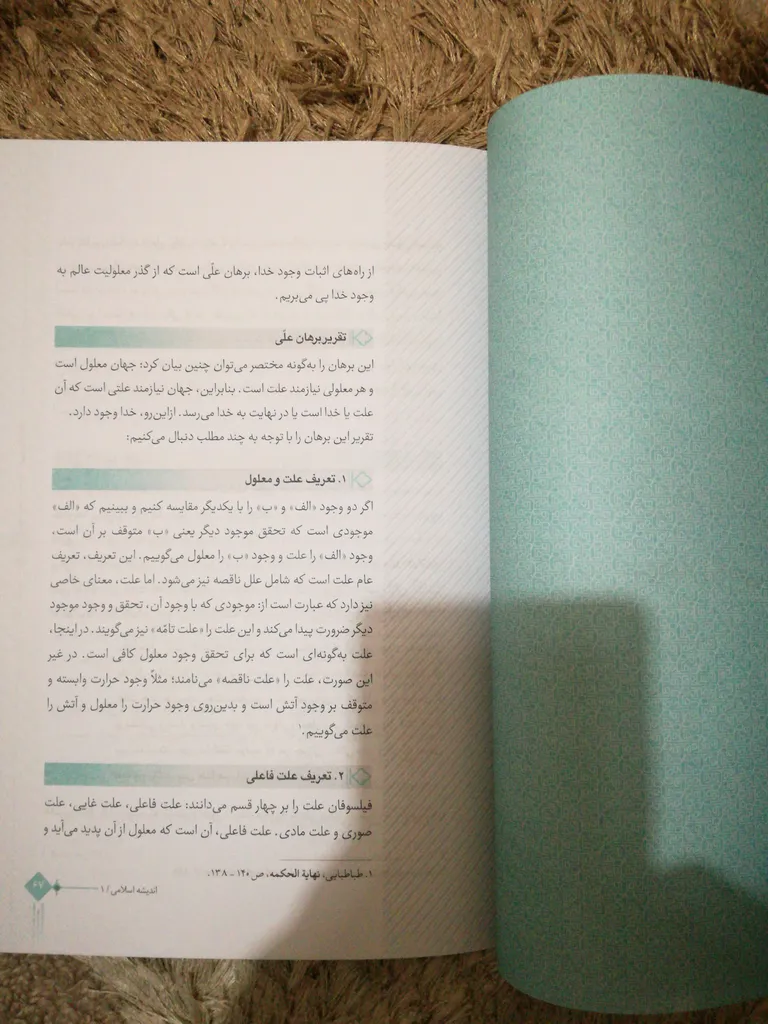 از راه‌های اثبات وجود خدا، برهان علّی است که از گذر معلولیت عالم به
وجود خدا پی می‌بریم.
تقریر برهان علّی
این برهان را به‌گونه مختصر می‌توان چنین بیان کرد: جهان معلول است
و هر معلولی نیازمند علت است. بنابراین، جهان نیازمند علتی است که آن
علت یا خدا است یا در نهایت به خدا می‌رسد. ازاین‌رو، خدا وجود دارد.
تقریر این برهان را با توجه به چند مطلب دنبال می‌کنیم:
۱. تعریف علت و معلول
اگر دو وجود «الف» و «ب» را با یکدیگر مقایسه کنیم و ببینیم که «الف»
موجودی است که تحقق موجود دیگر یعنی «ب» متوقف بر آن است،
وجود «الف» را علت و وجود «ب» را معلول می‌گوییم. این تعریف، تعریف
عام علت است که شامل علل ناقصه نیز می‌شود. اما علت، معنای خاصی
نیز دارد که عبارت است از: موجودی که با وجود آن، تحقق و وجود موجود
دیگر ضرورت پیدا می‌کند و این علت را «علت تامّه» نیز می‌گویند. در اینجا،
علت به‌گونه‌ای است که برای تحقق وجود معلول کافی است. در غیر
این صورت، علت را «علت ناقصه» می‌نامند؛ مثلاً وجود حرارت وابسته و
متوقف بر وجود آتش است و بدین‌روی وجود حرارت را معلول و آتش را
علت می‌گوییم.۱
۲. تعریف علت فاعلی
فیلسوفان علت را بر چهار قسم می‌دانند: علت فاعلی، علت غایی، علت
صوری و علت مادی. علت فاعلی، آن است که معلول از آن پدید می‌آید و
۱. طباطبایی، نهایة الحکمه، ص ۱۲۰ - ۱۳۸.
اندیشه اسلامی / ۱
۶۷